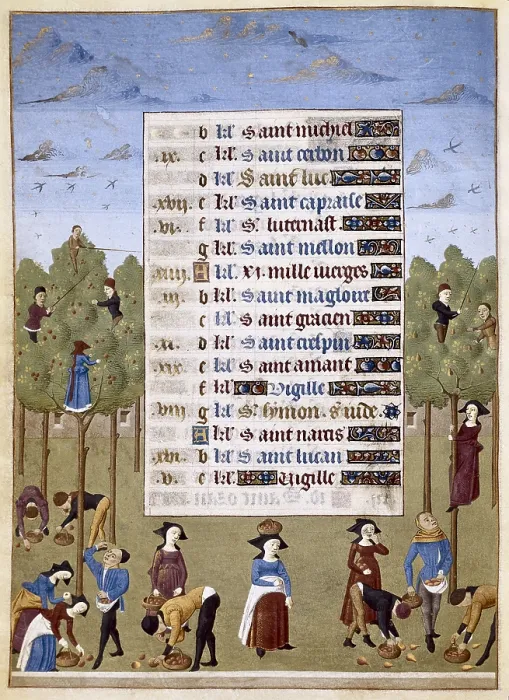 b kl'. Saint michiel
ix. c kl'. Saint cerbon
d kl'. Saint luc
xvii. e kl'. Saint capraise
vi. f kl'. St
g kl'. Saint mellon
xiiii. A kl'. xi. mille vierges
iii. b kl'. Saint magloire
c kl'. Saint gracien
xi. d kl'. Saint crespin
xix. e kl'. Saint amant
f kl'. Vigille
viii. g kl'. St symon. St iude.
A kl'. Saint narcis
xvi. b kl'. Saint lucan
v. c kl'. Vigille